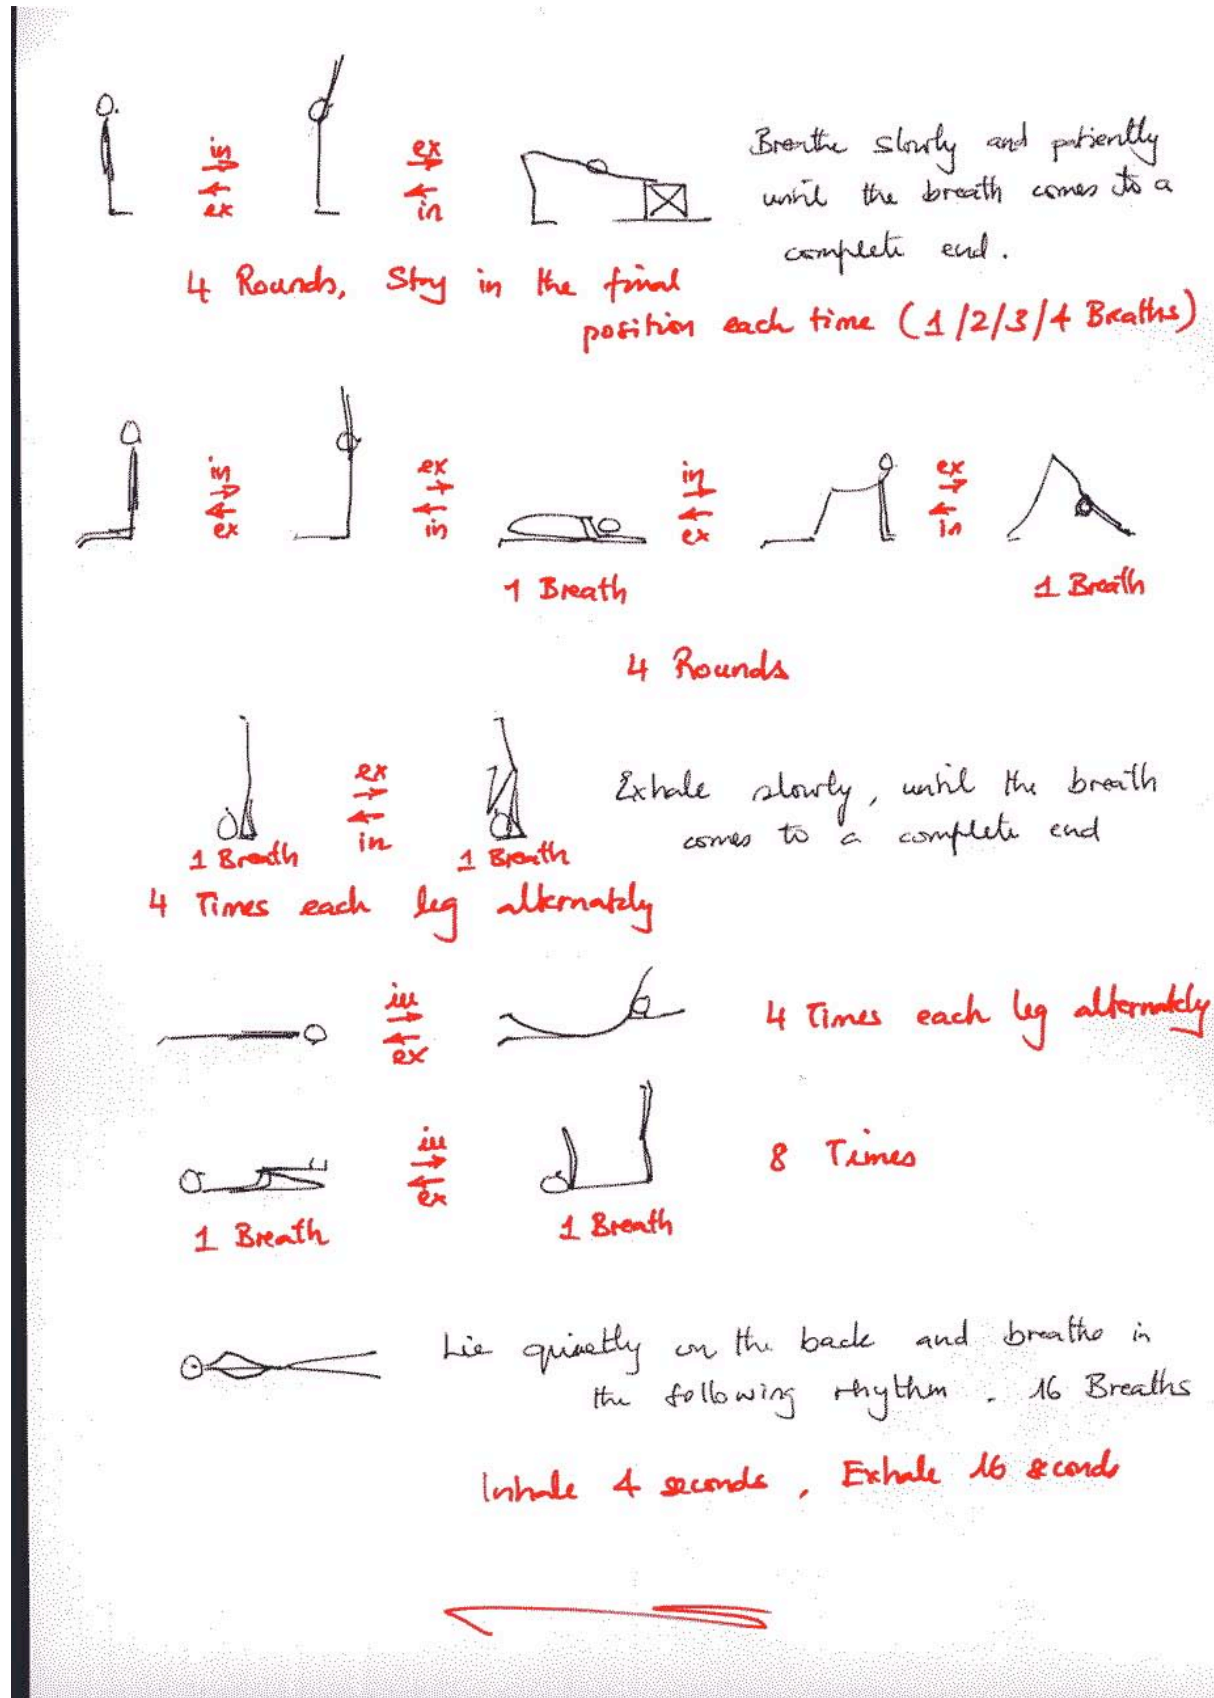 in
ex
ex
in
Breathe slowly and patiently
until the breath comes to a
complete end.
4 Rounds, Stay in the final
position each time (1/2/3/4 Breaths)
in
ex
ex
in
in
ex
ex
in
1 Breath
1 Breath
4 Rounds
ex
in
1 Breath
1 Breath
Exhale slowly, until the breath
comes to a complete end
4 Times each leg alternately
in
ex
4 Times each leg alternately
in
ex
8 Times
1 Breath
1 Breath
Lie quietly on the back and breathe in
the following rhythm. 16 Breaths
Inhale 4 seconds, Exhale 16 seconds